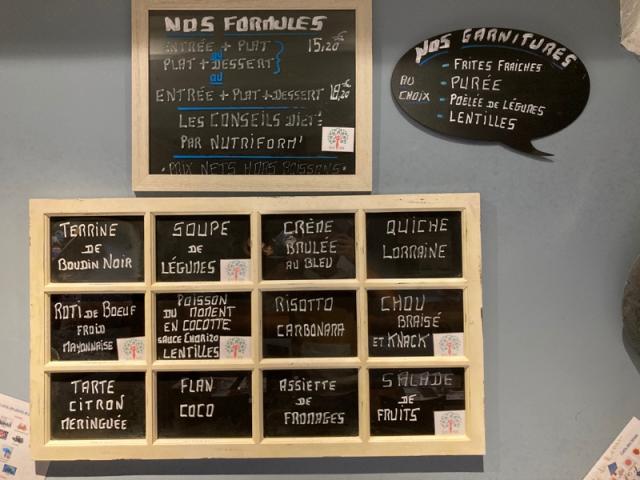 NOS FORMULES
ENTRÉE + PLAT 15,20€
ou
PLAT + DESSERT
ou
ENTRÉE + PLAT + DESSERT 18,20€
LES CONSEILS DIET'
PAR NUTRIFORM'
PRIX NETS HORS BOISSONS
NOS GARNITURES
AU CHOIX
- FRITES FRAICHES
- PURÉE
- POÊLÉE DE LÉGUMES
- LENTILLES
TERRINE
DE
BOUDIN NOIR
SOUPE
DE
LÉGUMES
CRÈME
BRULÉE
AU BLEU
QUICHE
LORRAINE
ROTI DE BOEUF
FROID
MAYONNAISE
POISSON
DU MOMENT
EN COCOTTE
SAUCE CHORIZO
LENTILLES
RISOTTO
CARBONARA
CHOU
BRAISÉ
ET KNACK
TARTE
CITRON
MERINGUÉE
FLAN
COCO
ASSIETTE
DE
FROMAGES
SALADE
DE
FRUITS